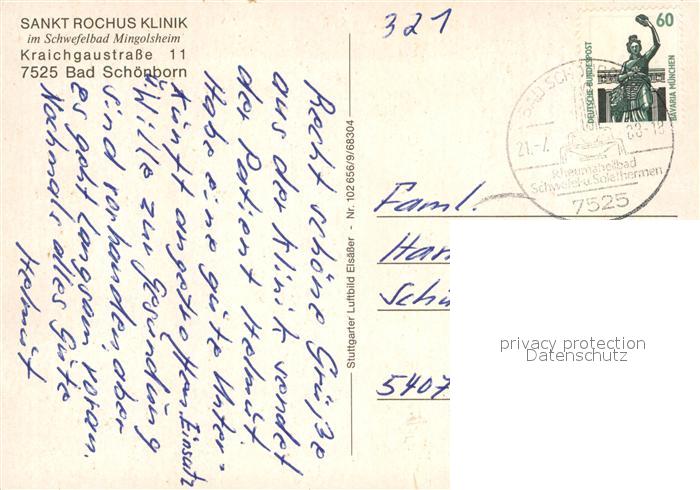 SANKT ROCHUS KLINIK
im Schwefelbad Mingolsheim
Kraichgaustraße 11
7525 Bad Schönborn
321
Recht schöne Grüße
aus der Klinik sendet
der Patient Helmut
Habe eine gute Unter-
kunft angetroffen, Einsatz
u. Wille zur Gesundung
sind vorhanden, aber
es geht langsam voran.
Nochmals alles Gute
Helmut
Stuttgarter Luftbild Elsäßer - Nr. 102 656/9/68304
60
DEUTSCHE BUNDESPOST
BAVARIA MÜNCHEN
BAD SCHÖ
21.-7. 88-18
Rheumaheilbad
Schwefel-u. Solethermen
7525
Faml.
Han
Schü
5407
privacy protection
Datenschutz